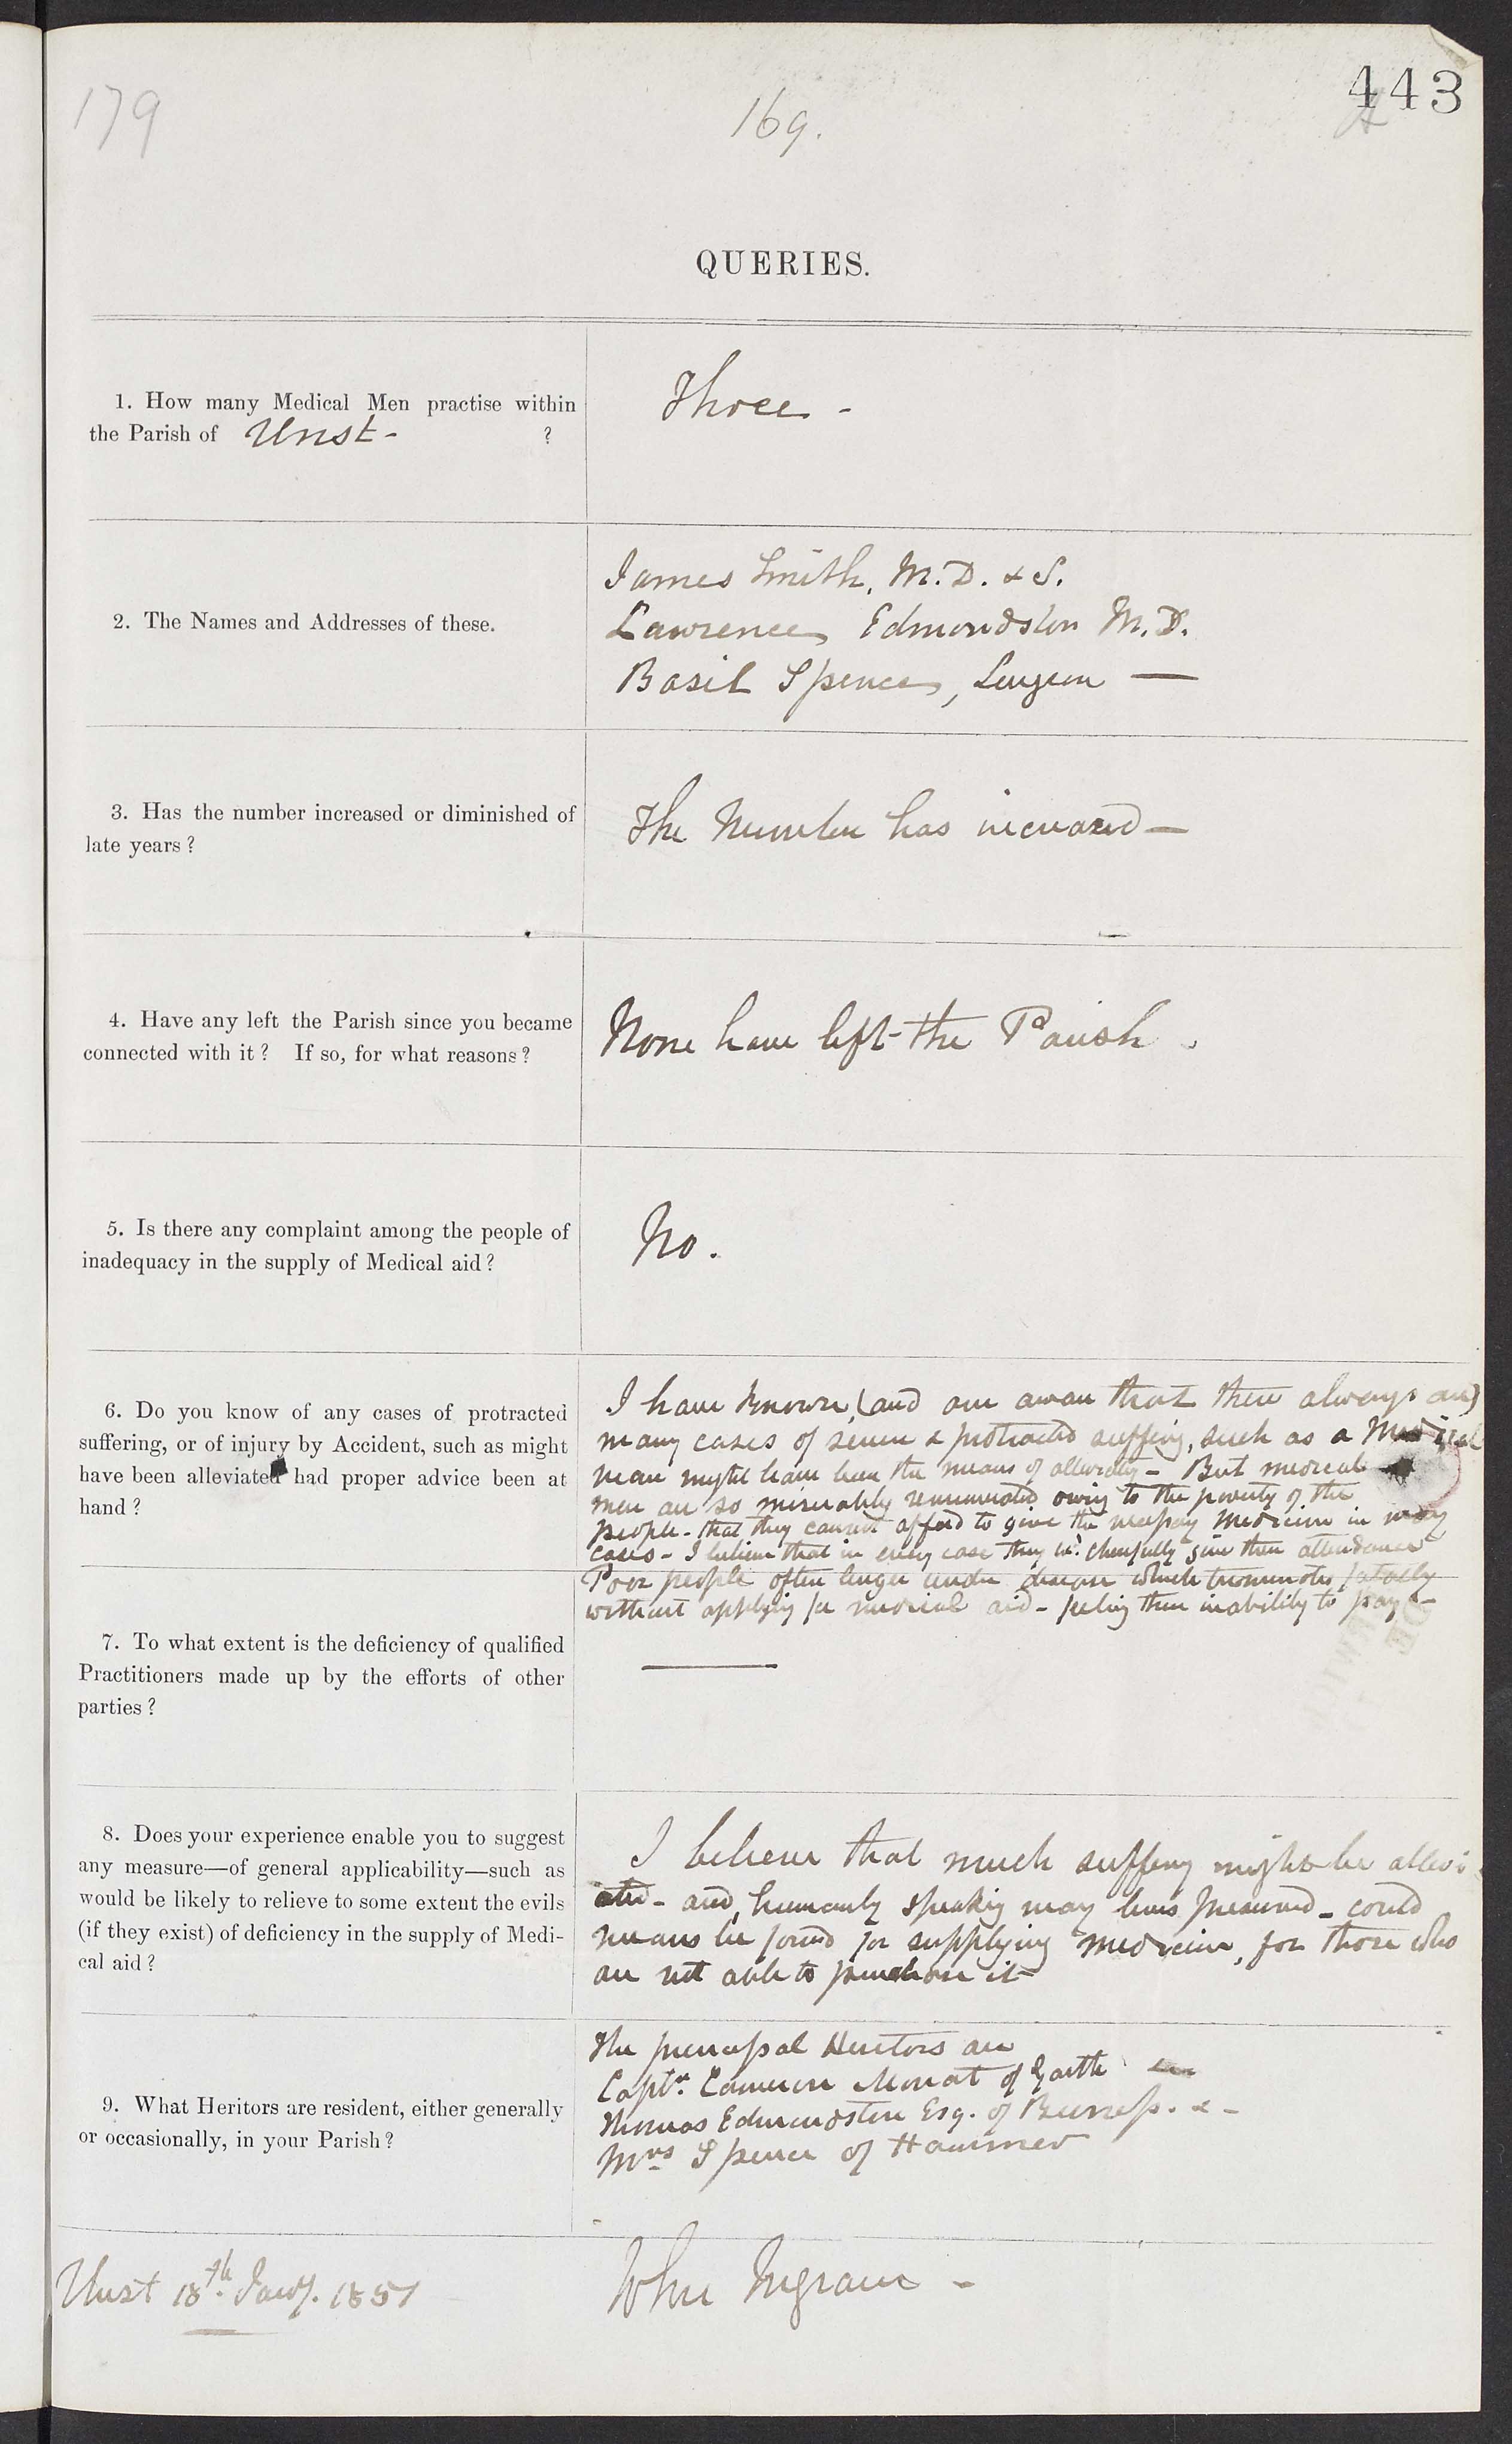 179
169.
443
QUERIES.
1. How many Medical Men practise within
the Parish of Unst - ?
Three -
2. The Names and Addresses of these.
James Smith, M.D. & S.
Lawrence Edmondston M.D.
Basil Spence, Surgeon —
3. Has the number increased or diminished of
late years?
The Number has increased —
4. Have any left the Parish since you became
connected with it? If so, for what reasons?
None have left the Parish.
5. Is there any complaint among the people of
inadequacy in the supply of Medical aid?
No.
6. Do you know of any cases of protracted
suffering, or of injury by Accident, such as might
have been alleviated had proper advice been at
hand?
I have known, (and am aware that there always are)
many cases of severe & protracted suffering, such as a Medical
man might have been the means of alleviating - But medical
men are so miserably remunerated owing to the poverty of the
people - that they cannot afford to give the necessary Medicine in many
cases - I believe that in every case they wd. cheerfully give their attendance
Poor people often linger under disease which terminates fatally
without applying for medical aid - feeling their inability to pay -
7. To what extent is the deficiency of qualified
Practitioners made up by the efforts of other
parties?
—
8. Does your experience enable you to suggest
any measure—of general applicability—such as
would be likely to relieve to some extent the evils
(if they exist) of deficiency in the supply of Medi-
cal aid?
I believe that much suffering might be allevi
ated - and, humanly speaking many lives preserved - could
means be found for supplying medicine, for those who
are not able to purchase it
9. What Heritors are resident, either generally
or occasionally, in your Parish?
The principal Heritors are
Captn. Cameron Mouat of Garth
Thomas Edmondston Esq. of Buness. & -
Mrs Spence of Hammer
Unst 18th. Jany. 1851
John Ingram -